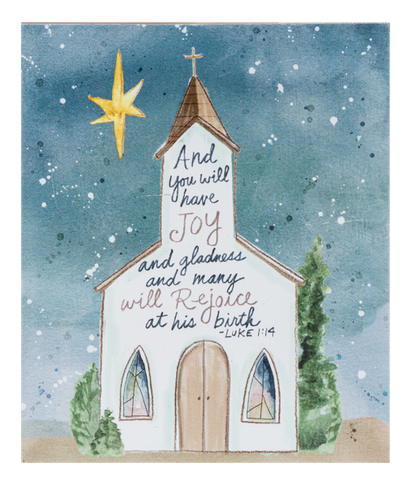 And
you will
have
JOY
and gladness
and many
will Rejoice
at his birth
-LUKE 1:14